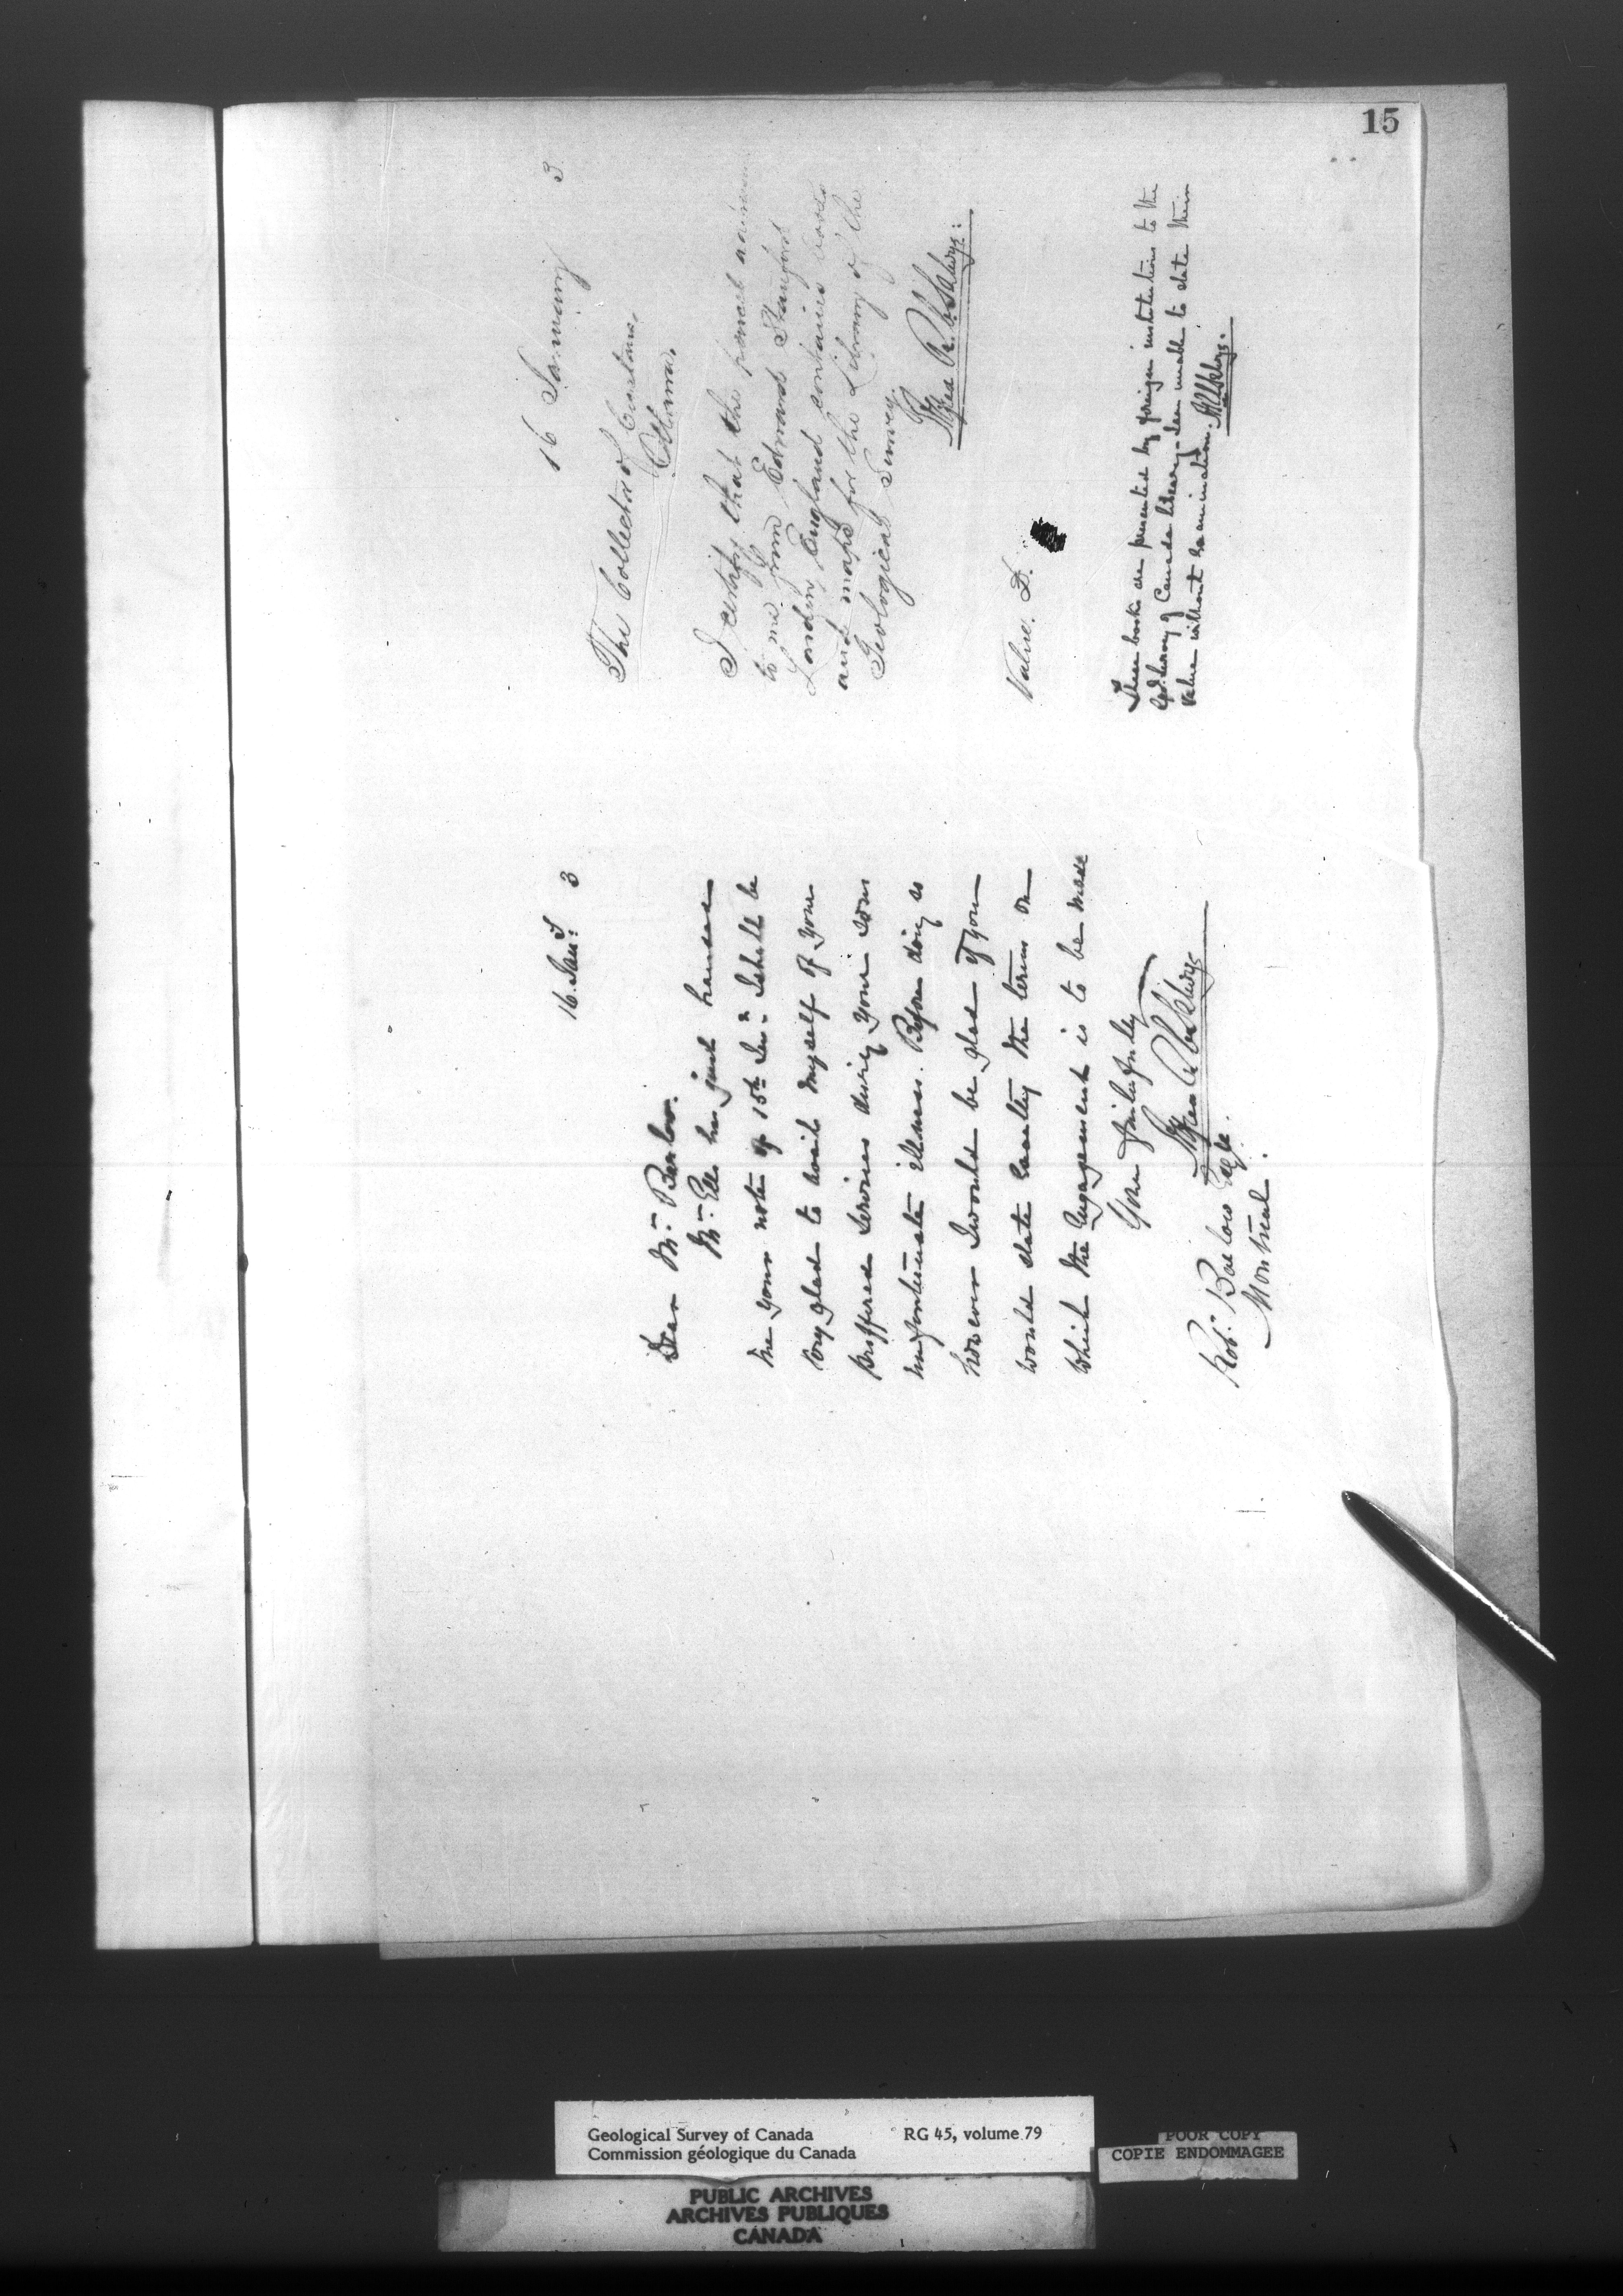 15
16. Jany 3
Dear Mr. Barlow.
Mr. Ells has just handed
me your note of 15th Inst. I shall be
very glad to avail myself of your
proffered services during your sons
unfortunate illness. Before doing so
however I would be glad if you
would state exactly the terms on
which the engagement is to be made
Yours faithfully
Robt. Barlow Esqre.
Montreal.
16 January 3
The Collector of Customs,
Ottawa.
I certify that the parcel
to me from Edward Stanford
London, England contains books
and maps for the Library of the
Geological Survey.
Value. D.
These books are presented by foreign institutions to the
Geol. Survey of Canada library. I am unable to state their
value without examination.
Geological Survey of Canada
Commission géologique du Canada
RG 45, volume 79
POOR COPY
COPIE ENDOMMAGEE
PUBLIC ARCHIVES
ARCHIVES PUBLIQUES
CANADA